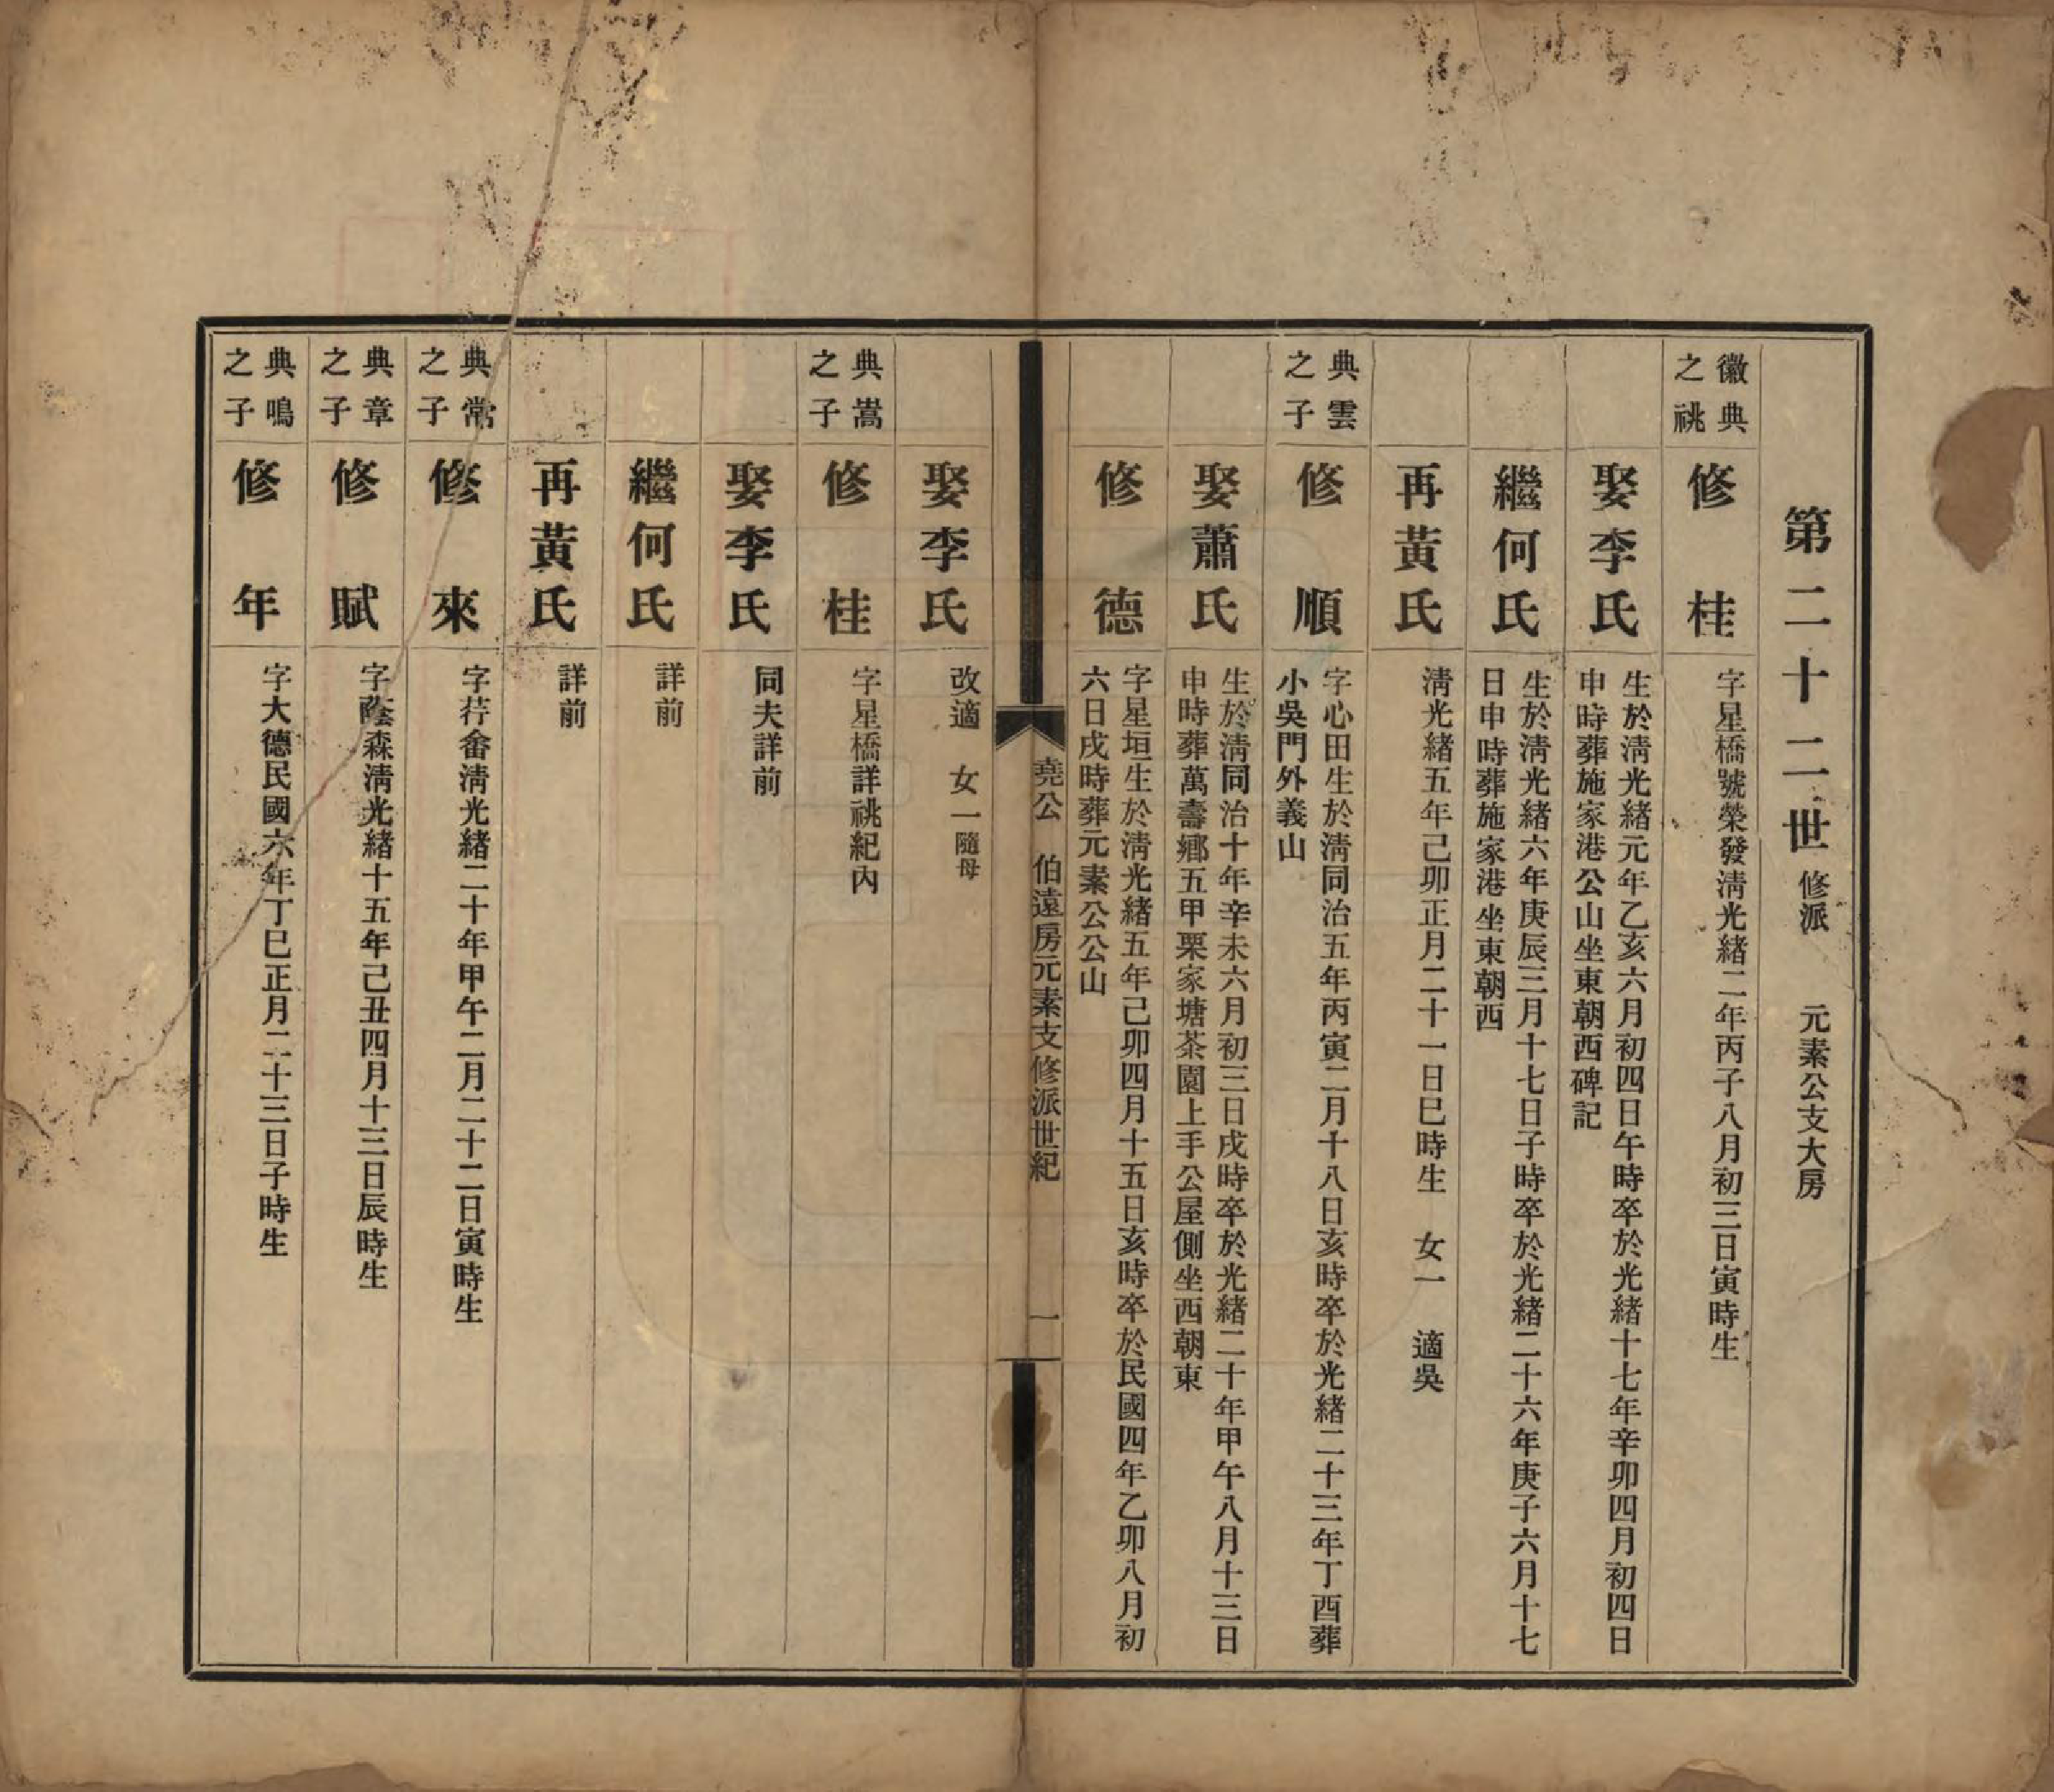 第二十二世 修派 元素公支大房
徽典
之祧
修桂
字星橋號榮發淸光緒二年丙子八月初三日寅時生
娶李氏
生於淸光緒元年乙亥六月初四日午時卒於光緒十七年辛卯四月初四日
申時葬施家港公山坐東朝西碑記
繼何氏
生於淸光緒六年庚辰三月十七日子時卒於光緒二十六年庚子六月十七
日申時葬施家港坐東朝西
再黃氏
淸光緒五年己卯正月二十一日巳時生 女一 適吳
典雲
之子
修順
字心田生於淸同治五年丙寅二月十八日亥時卒於光緒二十三年丁酉葬
小吳門外義山
娶蕭氏
生於淸同治十年辛未六月初三日戌時卒於光緒二十年甲午八月十三日
申時葬萬壽鄉五甲栗家塘茶園上手公屋側坐西朝東
修德
字星垣生於淸光緒五年己卯四月十五日亥時卒於民國四年乙卯八月初
六日戌時葬元素公公山
堯公 伯遠房元素支修派世紀 一
娶李氏
改適 女一隨母
典嵩
之子
修桂
字星橋詳祧紀內
娶李氏
同夫詳前
繼何氏
詳前
再黃氏
詳前
典常
之子
修來
字荇畬淸光緒二十年甲午二月二十二日寅時生
典章
之子
修賦
字蔭森淸光緒十五年己丑四月十三日辰時生
典鳴
之子
修年
字大德民國六年丁巳正月二十三日子時生